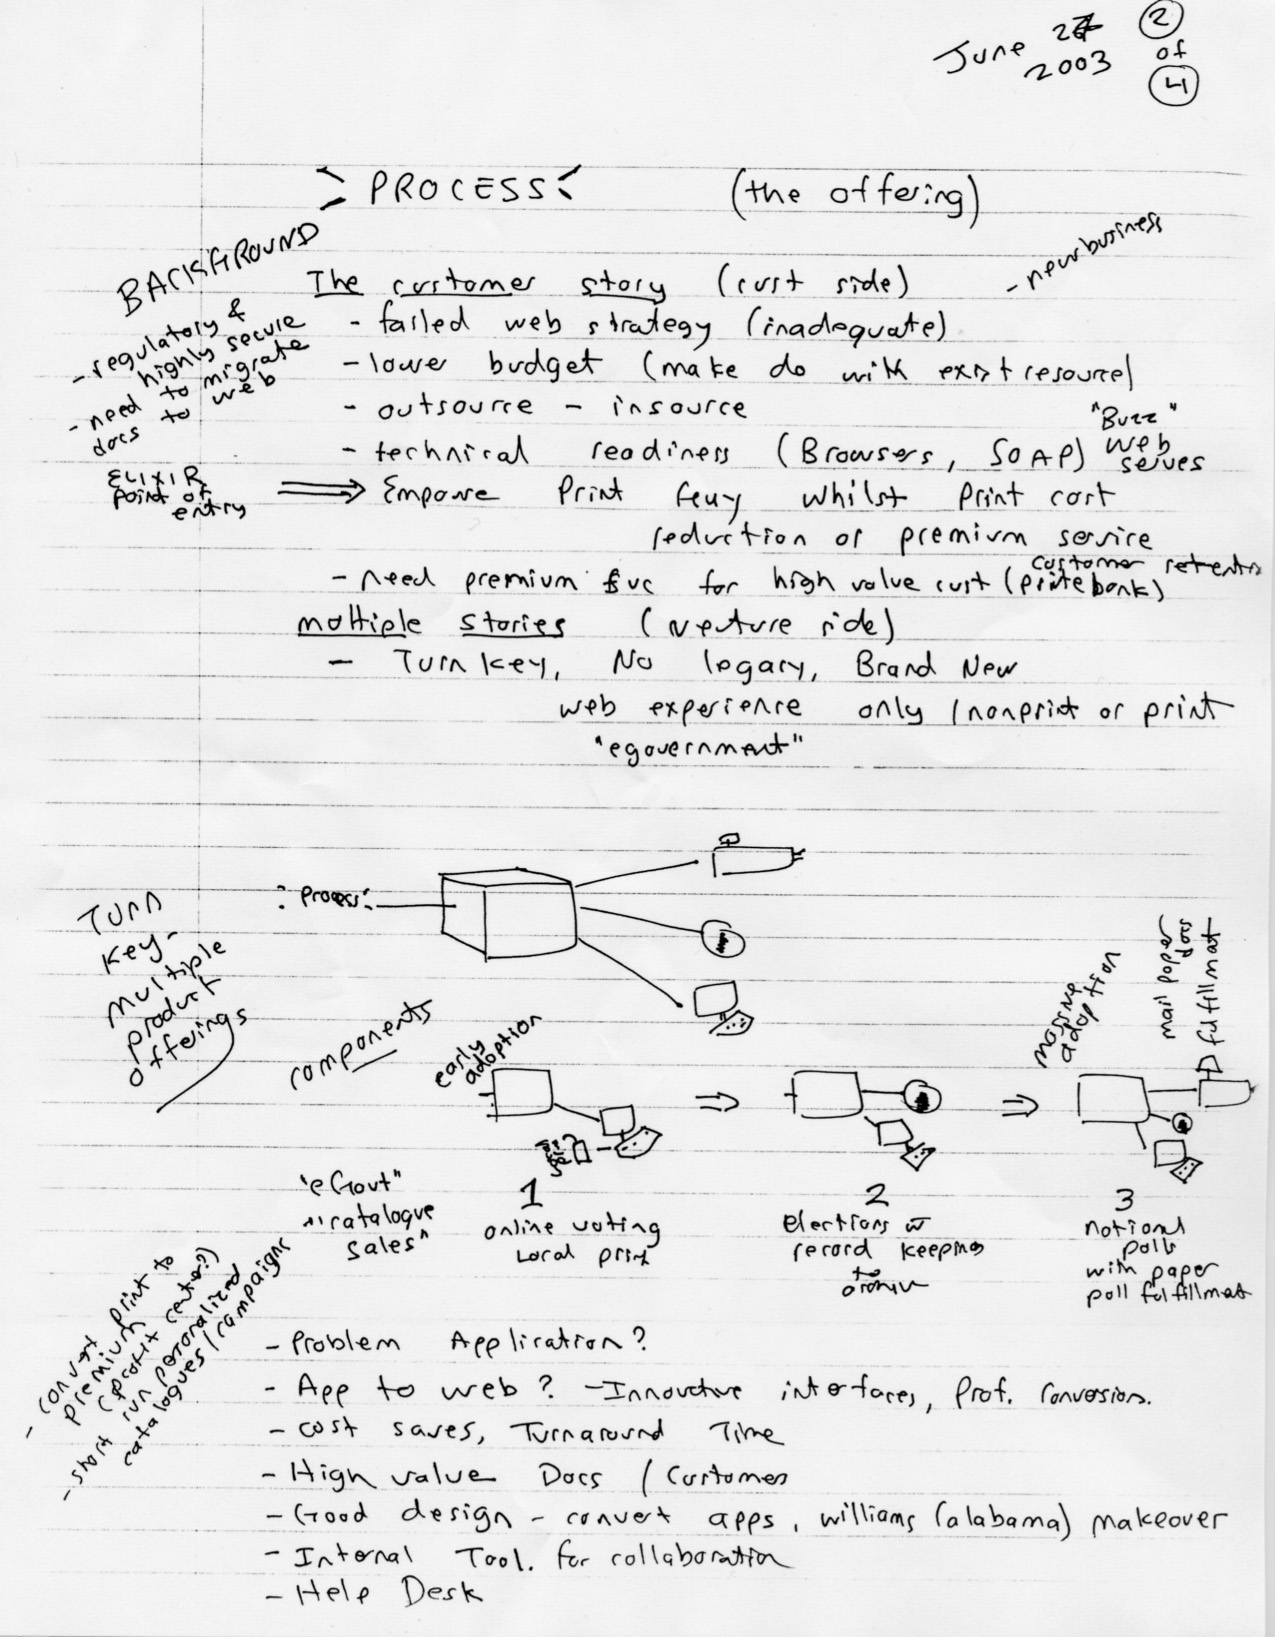 June 27 2
2003 of
4
PROCESS (the offering)
BACKGROUND
- regulatory &
highly secure
- need to migrate
docs to web
ELIXIR
point of
entry
The customer story (cust side) - new business
- failed web strategy (inadequate)
- lower budget (make do with exist resource)
- outsource - insource
- technical readiness (Browsers, SOAP) "Buzz"
web
serves
Print whilst print cost
reduction or premium service
customer
- need premium svc for high value cust (
multiple stories (venture side)
- Turn key, No legacy, Brand New
web experience only (nonprint or print
"egovernment"
:Process:
Turn
key -
multiple
product
offerings
components
early
adoption
massive
adoption
mail paper
docs
fulfillment
"eGovt"
"catalogue
sales"
1
online voting
Local print
2
Elections w
record keeping
to
archive
3
national
polls
with paper
poll fulfillment
- convert print to
premium
(profit center?)
- short run personalized
catalogues/campaigns
- Problem Application?
- App to web? - Innovative interfaces, Prof. Conversion.
- cost saves, Turnaround Time
- High value Docs / Customer
- Good design - convert apps, williams (alabama) makeover
- Internal Tool. for collaboration
- Help Desk